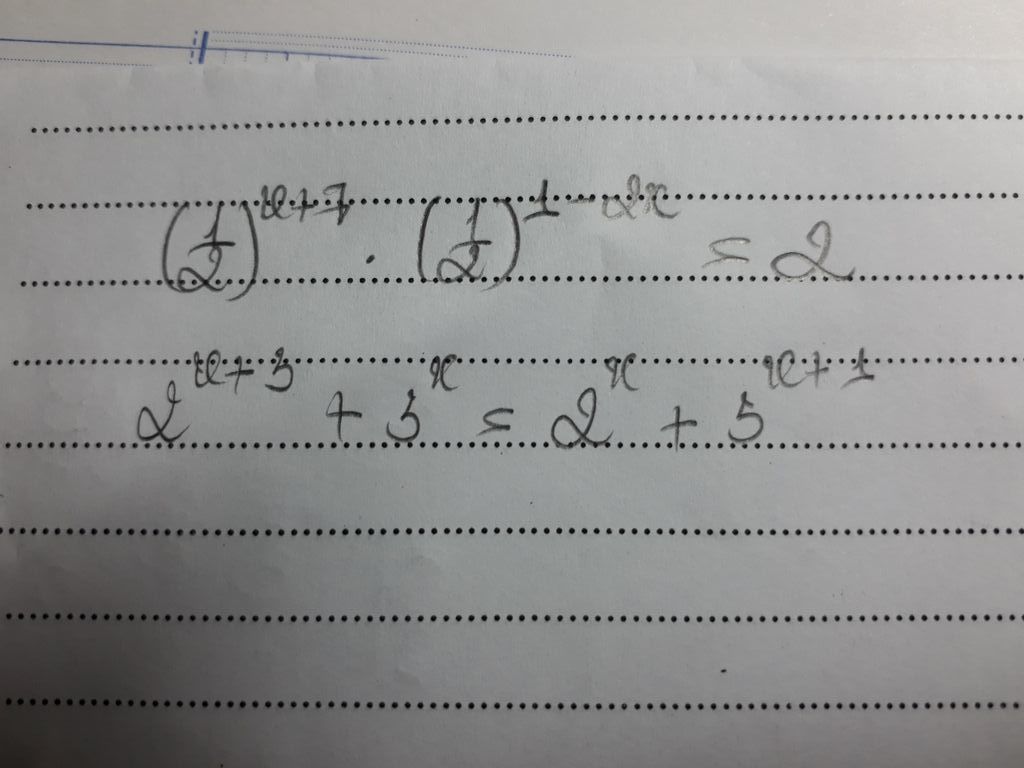 (1/2)^{x+7} . (1/2)^{1-2x} = 2
2^{x+3} + 3^{x} = 2^{x} + 3^{x+1}